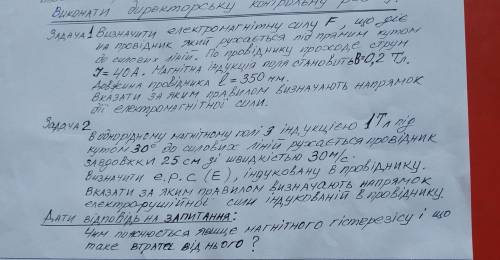 Виконати директорську контрольну
Задача 1 Визначити електромагнітну силу F, що діє
на провідник який рухається під прямим кутом
до силових ліній. По провіднику проходе струм
I=40А. Магнітна індукція поля становить B=0,2 Тл.
Довжина провідника l=350 мм.
Вказати за яким правилом визначають напрямок
дії електромагнітної сили.
Задача 2
В однорідному магнітному полі з індукцією 1Тл під
кутом 30° до силових ліній рухається провідник
завдовжки 25 см зі швидкістью 30м/с.
Визначити е.р.с. (Е), індуковану в провіднику.
Вказати за яким правилом визначають напрямок
електрорушійної сили індукованій в провіднику.
Дати відповідь на запитання:
Чим пояснюється явище магнітного гістерезісу і що
таке втрати від нього?